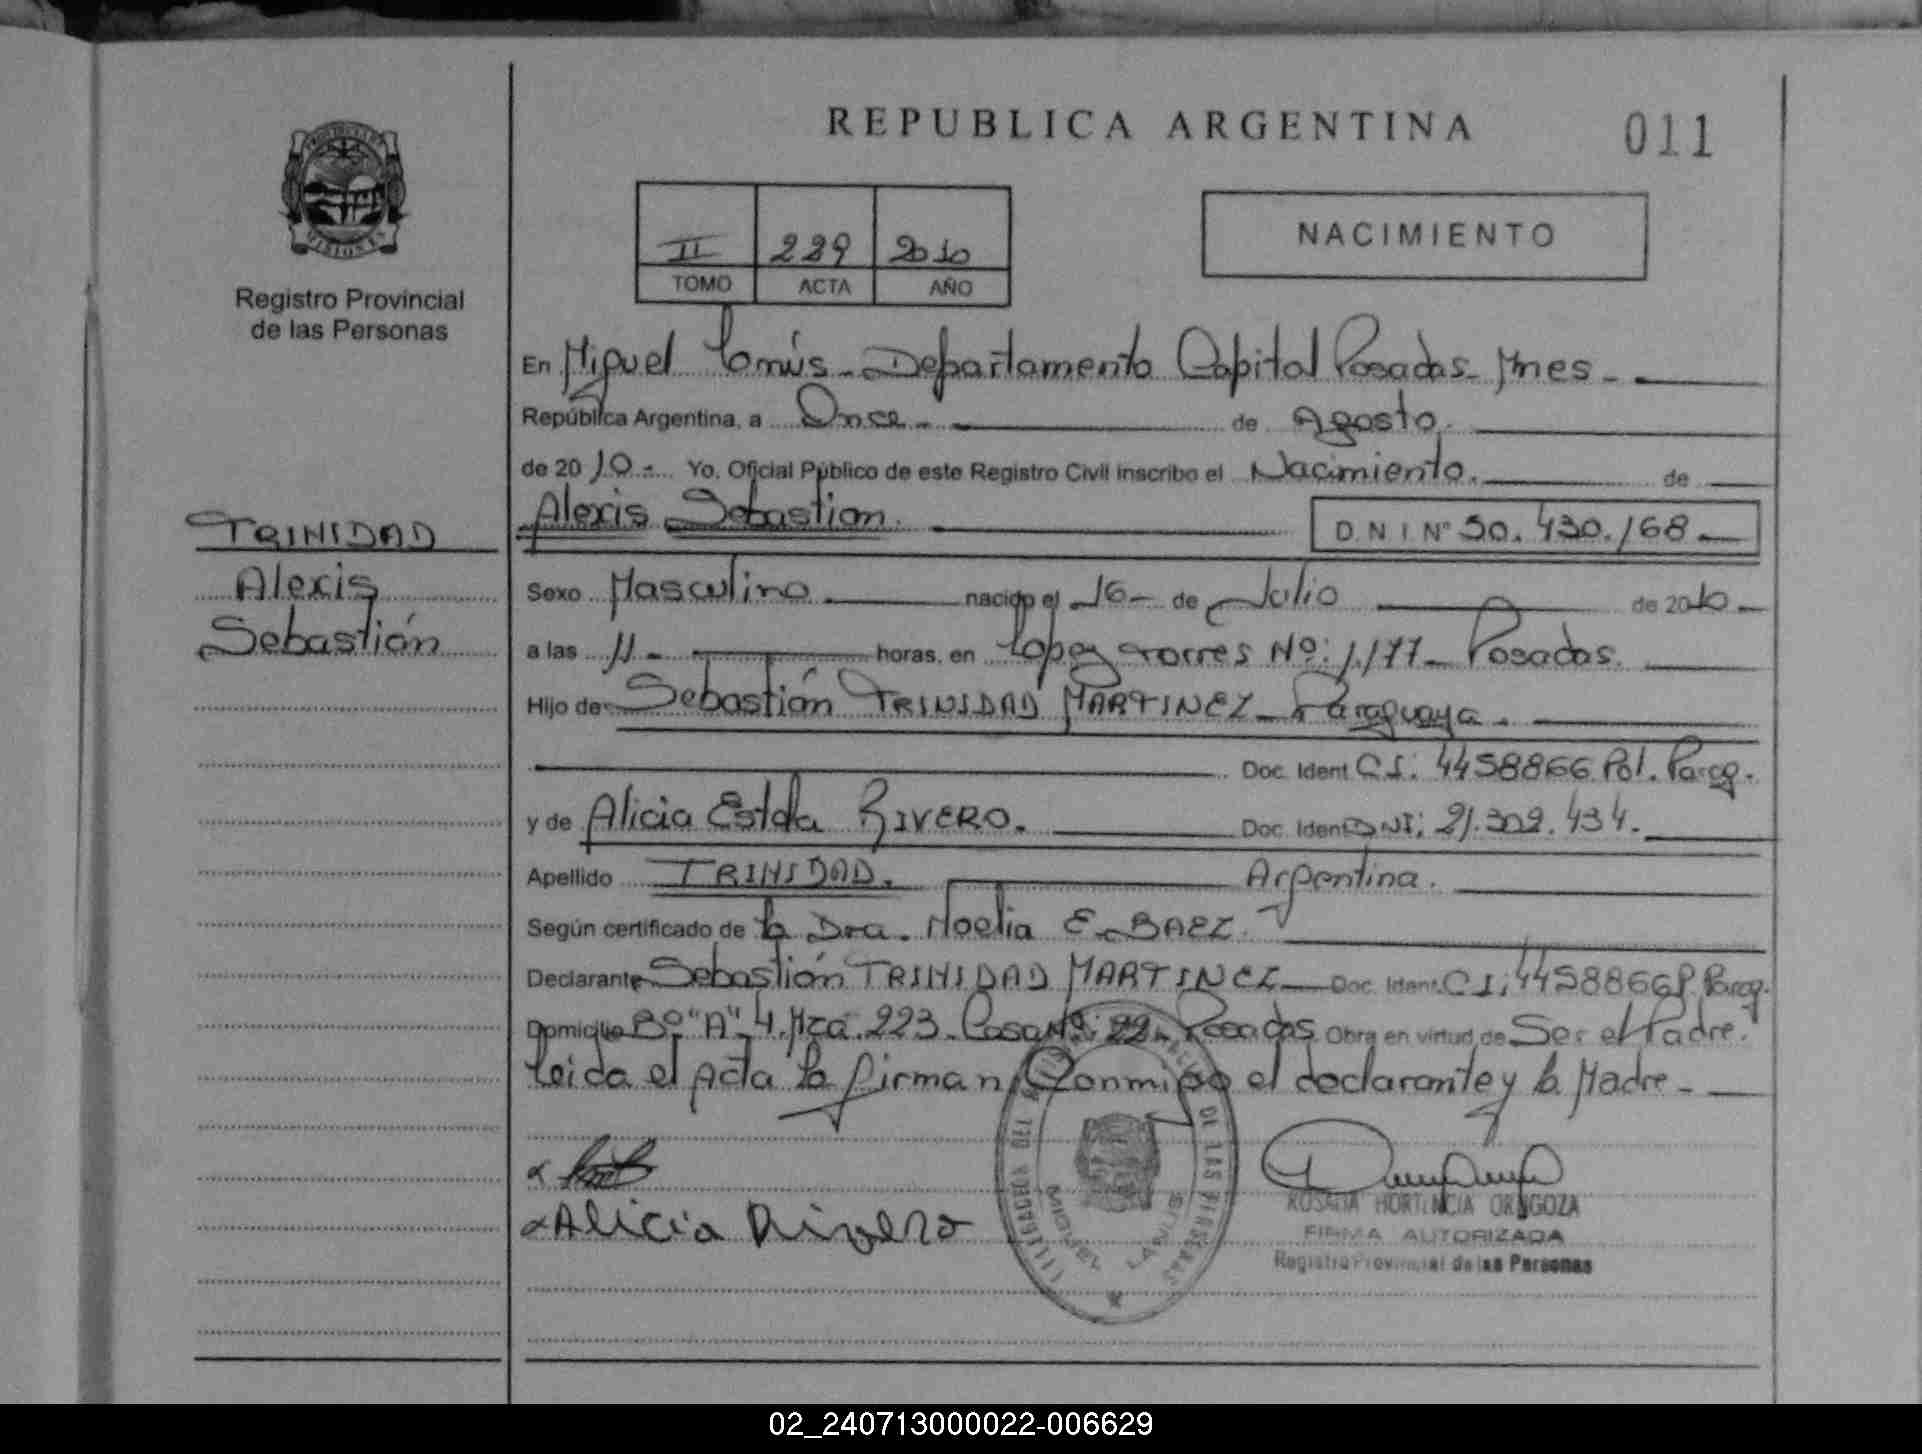 REPUBLICA ARGENTINA
011
PROVINCIA DE
MISIONES
Registro Provincial
de las Personas
II 229 2010
TOMO ACTA AÑO
NACIMIENTO
En Miguel Lanús - Departamento Capital Posadas - Mnes -
República Argentina, a Once - de Agosto.
de 2010 - Yo, Oficial Público de este Registro Civil inscribo el Nacimiento. de
Alexis Sebastian. D.N.I. Nº 50.430.168 -
TRINIDAD
Alexis
Sebastián
Sexo Masculino nacido el 16 - de Julio de 2010 -
a las 11 - horas, en López Torres Nº: 1.177 - Posadas.
Hijo de Sebastián TRINIDAD MARTINEZ - Paraguaya.
Doc. Ident C.I: 4458866 Pol. Parag.
y de Alicia Estela RIVERO. Doc. Ident DNI: 21.302.434.
Apellido TRINIDAD. Argentina.
Según certificado de la Dra. Noelia E. BAEZ.
Declarante Sebastián TRINIDAD MARTINEZ - Doc. Ident. C.I: 4458866 P. Parag.
Domicilio Bº "A" 4. Mza 223. Casa Nº: 22 - Posadas Obra en virtud de Ser el Padre.
Leida el Acta la firman Conmigo el declarante y la Madre -
Alicia Rivero
DE LAS PERSONAS
MIGUEL LANUS
ROSANA HORTENCIA
FIRMA AUTORIZADA
Registro Provincial de las Personas
02_240713000022-006629